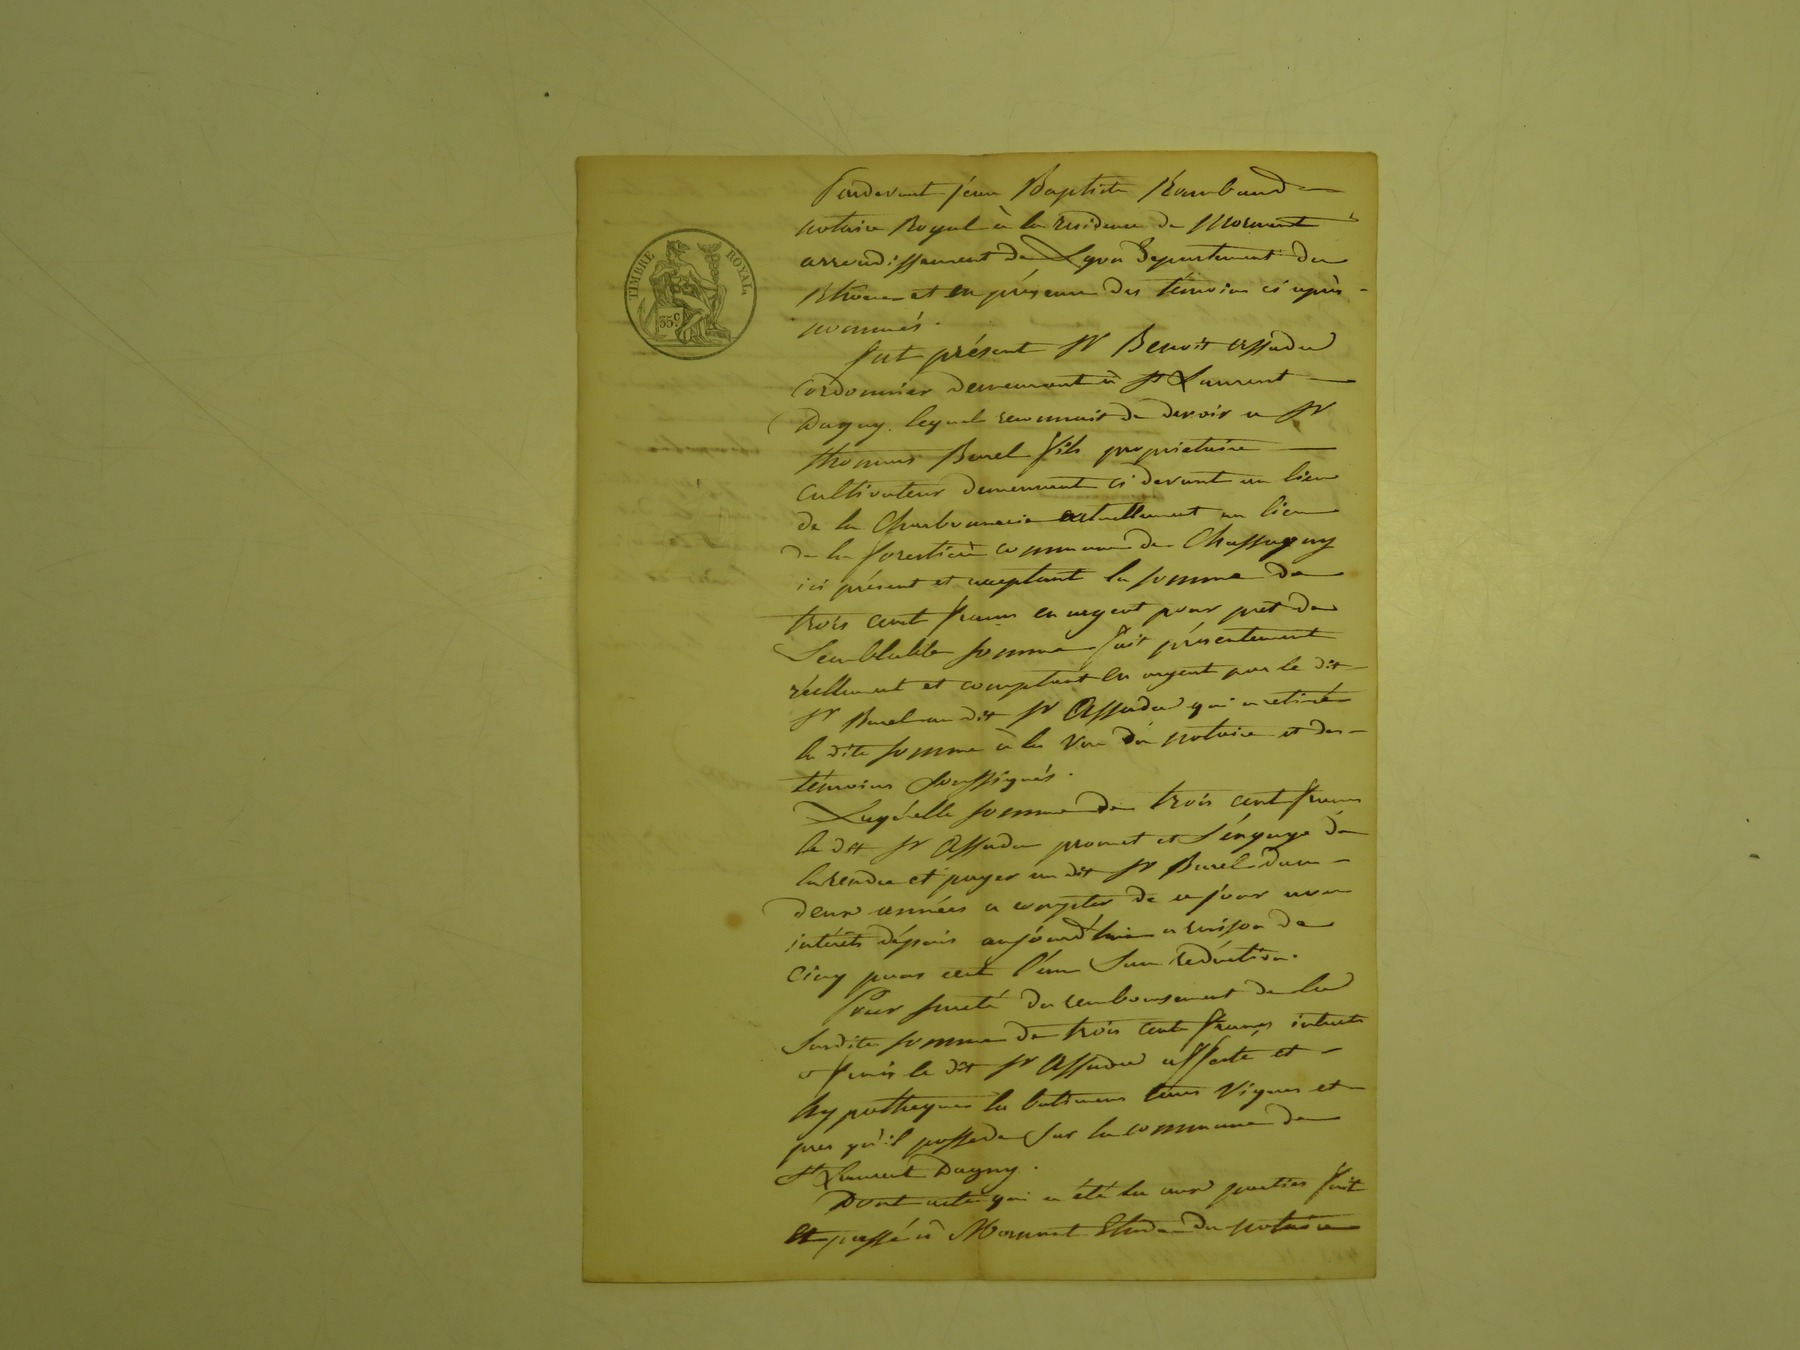 TIMBRE ROYAL
35 c.
Pardevant jean Baptiste Rambaud
notaire Royal à la residence de Mornant
arrondissement de Lyon Departement du
Rhone et en présence des témoins ci après
nommés.
fut présent Sr Benoit Assada
cordonnier demeurant à St Laurent
Dagny. lequel reconnait de devoir a Sr
thomas Burel fils propriétaire
cultivateur demeurant ci devant au lieu
de la Charbonnerie actuellement au lieu
de la forestière commune de Chassagny
ici présent et acceptant la somme de
trois cent francs en argent pour pret de
Semblable somme fait présentement
réellement et comptant en argent par le dit
Sr Burel au dit Sr Assada qui a retiré
la dite somme à la vue du notaire et des
témoins soussignés.
Laquelle somme de trois cent francs
le dit Sr Assada promet et s'engage de
la rendre et payer au dit Sr Burel dans
deux années a compter de ce jour avec
intérêts dépuis aujourd'hui a raison de
cinq pour cent l'an San reduction.
Pour sureté du remboursement de la
susdite somme de trois cent francs intérets
& frais le dit Sr Assada affecte et
hypotheque les batimens terres vignes et
pres qu'il possede sur la commune de
St Laurent Dagny.
Dont acte qui a été lu aux parties fait
et passé à Mornant Etude du notaire